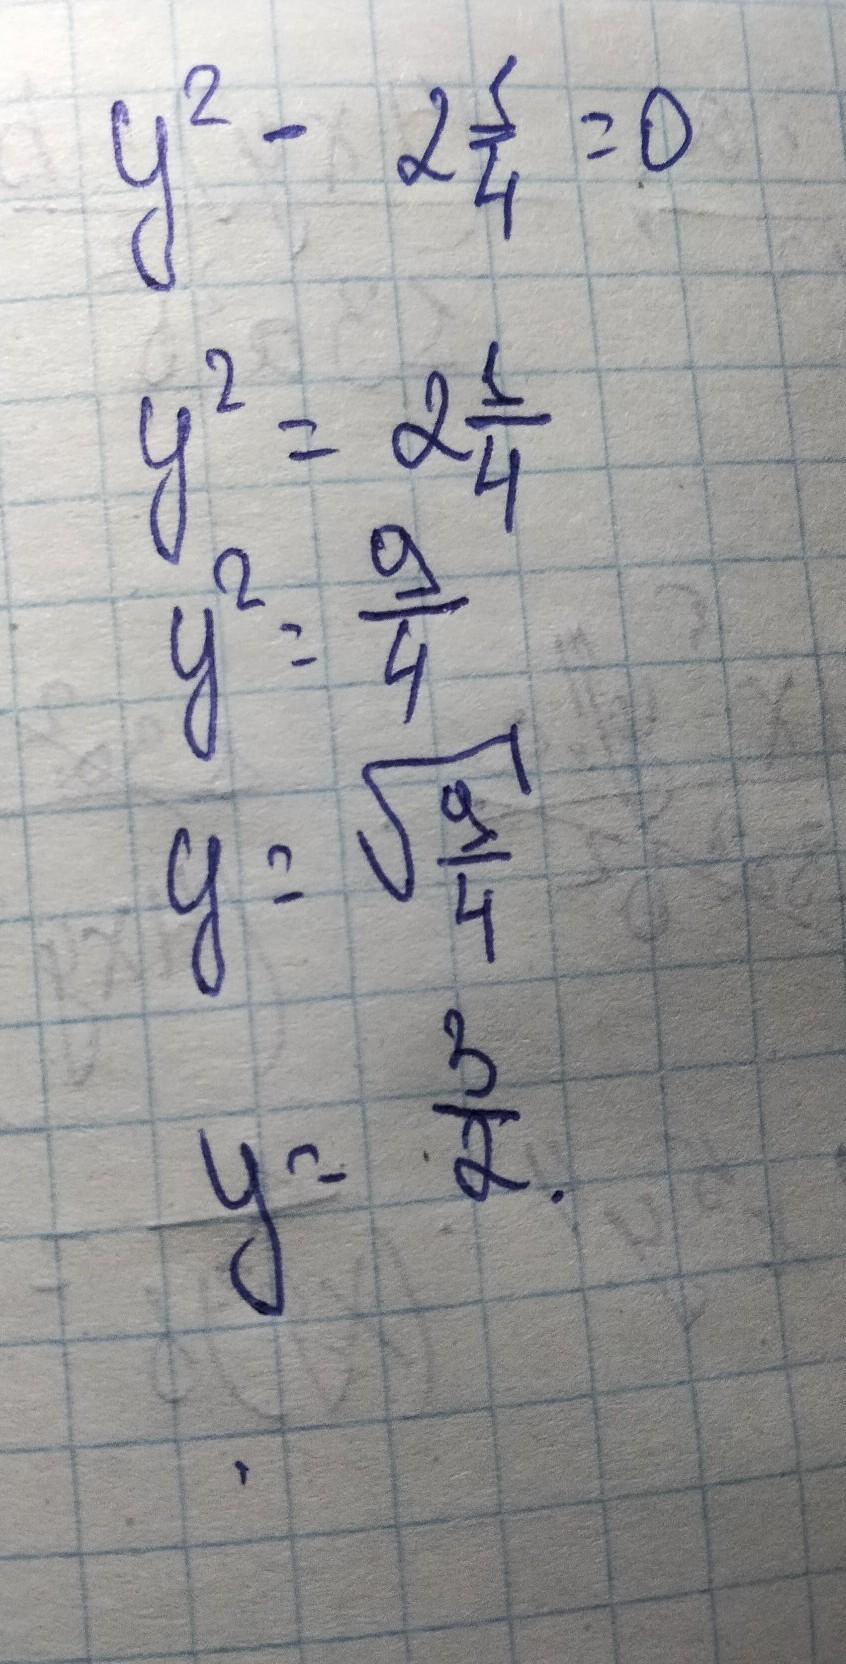 y² - 2 1/4 = 0
y² = 2 1/4
y² = 9/4
y = √(9/4)
y = 3/2.